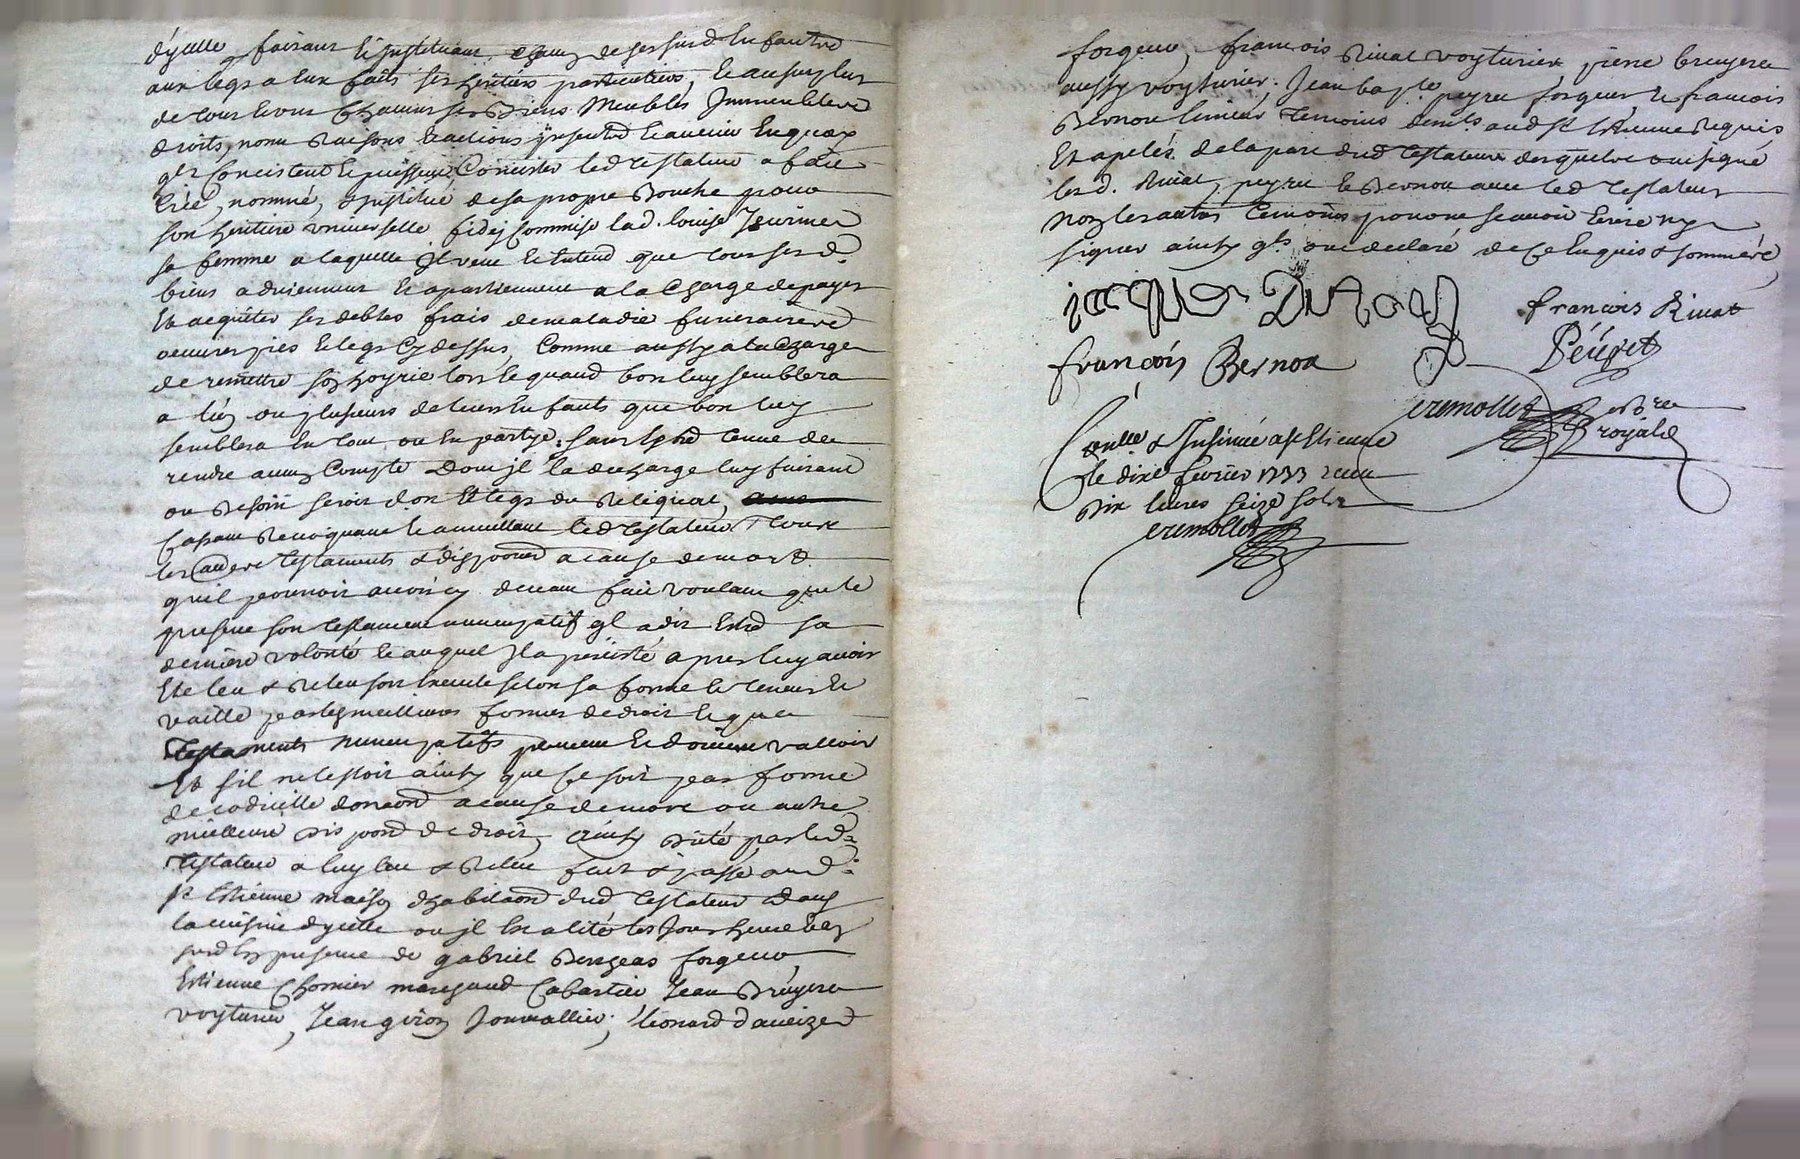 d'ycelle faisant & instituant chacun de sesusd enfants
aux legs a eux faits ses heritiers particuliers, et au surplus
de tous et uns chacuns ses biens meubles immeubles
droits, noms raisons et actions presents et avenir en quoy
qls consistent et puissent consister led testateur a fait
créé, nommé, & institué de sa propre bouche pour
son heritiere universelle fideycommise lad. louise
sa femme a laquelle il veut et entend que tous sesd.
biens advienneut et apartiennent a la charge de payer
et acquiter ses debtes frais de maladie funeraires
oeuvres pies et legs cy dessus, comme aussy a la charge
de remettre son hoyrie lors et quand bon luy semblera
a un ou plusieurs de leurs enfants que bon luy
semblera en tout ou en partye, sans estre tenue de
rendre aucun compte dont jl la decharge luy faisant
au besoin seroit don et legs du reliquat
cassant revoquant et annullant led testateur tous
les autres testaments & dispoons a cause de mort
qu'il pourroit avoir cy devant fait voulant que le
present son testament nuncupatif ql a dit estre sa
derniere volonté et auquel jl a persisté apres luy avoir
este leu & releu sort execute selon sa forme et teneur et
vaille par les meilleures formes de droit et que
testaments nuncupatifs peuvent et doivent valloir
et s'il ne lestoit ainsy que ce soit par forme
de codicille donaon a cause de mort ou autre
meilleure dispoon de droit, ainsy dicté par led.
testateur a luy leu & releu fait & passé aud.
st estienne maison d'habitaon dud testateur dans
la cuisine d'ycelle ou jl est alité les jour heure et an
susd en presence de gabriel forgeur
estienne chomier marchand cabartier jean bruyere
voyturier, jean giron journallier, leonard
forgeur, francois rivat voyturier pierre bruyere
aussy voyturier, jean bapte peyret forgeur & francois
bernou limeur temoins demts aud st estienne requis
et apelés de la part dud testateur desquels ont signé
lesd. rivat, peyret et bernou avec led testateur
non les autres temoins pour ne scavoir ecrire ny
signer ainsy qls ont declaré de ce enquis & sommés
francois Rivat
francois Bernou
Péiret
cremollet
nore
royal
conllé & Insinué a st Estienne
le dix fevrier 1733 receu
dix livres seize sols
cremollet